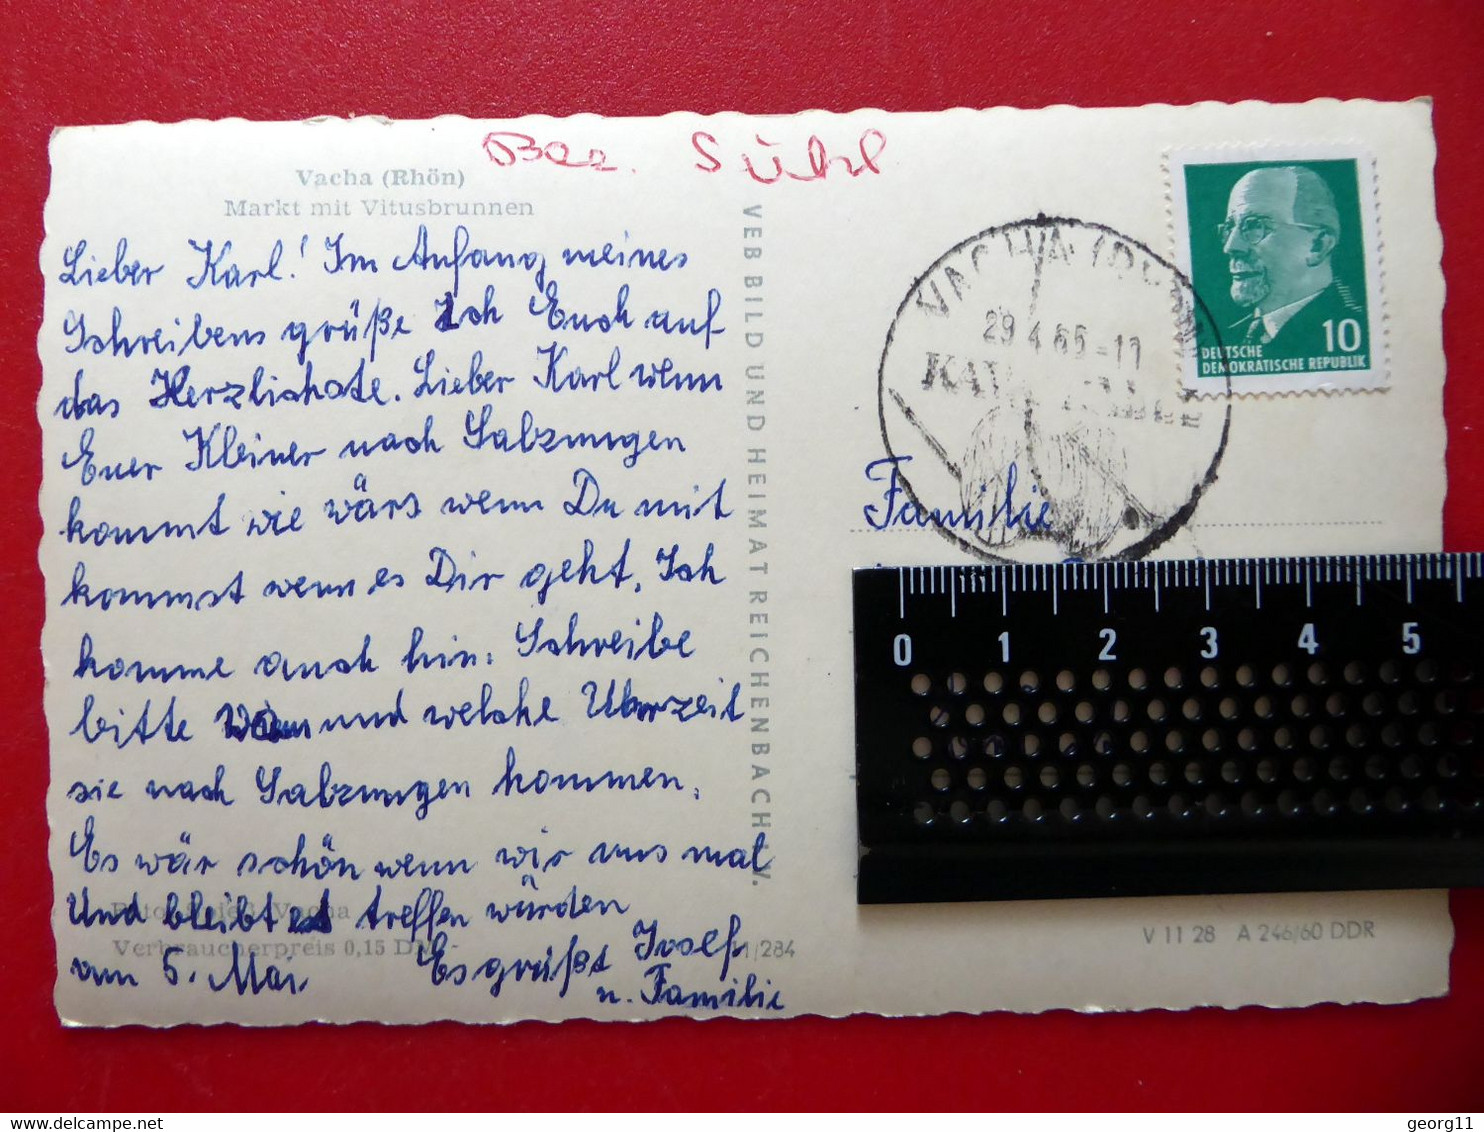 Bez. Suhl
Vacha (Rhön)
Markt mit Vitusbrunnen
Lieber Karl! Im Anfang meines
Schreibens grüße Ich Euch auf
das Herzlichste. Lieber Karl wenn
Euer Kleiner nach Salzungen
kommt wie wärs wenn Du mit
kommst wenn es Dir geht, Ich
komme auch hin. Schreibe
bitte wann und welche Uhrzeit
sie nach Salzungen kommen.
Es wär schön wenn wir uns mal
treffen würden
Und bleibt
am 5. Mai.
Es grüßt Josef
u. Familie
Vacha
Verbraucherpreis 0,15 DM
11/284
VEB BILD UND HEIMAT REICHENBACH I. V.
VACHA (RHÖN)
29.4.65-11
10
DEUTSCHE
DEMOKRATISCHE REPUBLIK
Familie
0 1 2 3 4 5
V 11 28 A 246/60 DDR
georg11